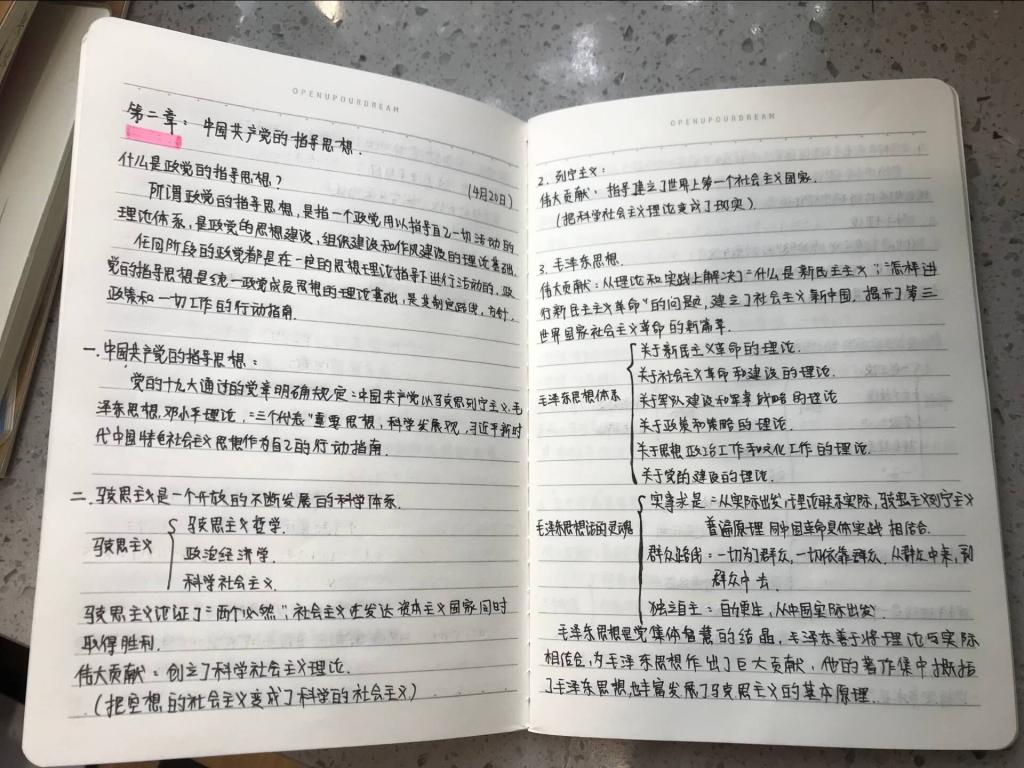 OPENUPOURDREAM
第二章：中国共产党的指导思想.
什么是政党的指导思想？
(4月20日)
所谓政党的指导思想，是指一个政党用以指导自己一切活动的
理论体系，是政党的思想建设，组织建设和作风建设的理论基础.
任何阶段的政党都是在一定的思想理论指导下进行活动的，政
党的指导思想是统一政党成员思想的理论基础，是其制定路线，方针，
政策和一切工作的行动指南.
一.中国共产党的指导思想：
党的十九大通过的党章明确规定：中国共产党以马克思列宁主义、毛
泽东思想、邓小平理论，“三个代表”重要思想，科学发展观，习近平新时
代中国特色社会主义思想作为自己的行动指南.
二.马克思主义是一个开放的不断发展的科学体系.
马克思主义哲学.
马克思主义
政治经济学.
科学社会主义.
马克思主义论证了“两个必然”；社会主义在发达资本主义国家同时
取得胜利.
伟大贡献：创立了科学社会主义理论.
(把空想的社会主义变成了科学的社会主义)
OPENUPOURDREAM
2.列宁主义：
伟大贡献：指导建立了世界上第一个社会主义国家.
(把科学社会主义理论变成了现实)
3.毛泽东思想.
伟大贡献：从理论和实践上解决了“什么是新民主主义”；“怎样进
行新民主主义革命”的问题，建立了社会主义新中国，揭开了第三
世界国家社会主义革命的新篇章.
关于新民主主义革命的理论.
关于社会主义革命和建设的理论.
毛泽东思想体系
关于军队建设和军事战略的理论
关于政策和策略的理论.
关于思想政治工作和文化工作的理论.
关于党的建设的理论.
实事求是：从实际出发，理论联系实际，马克思主义列宁主义
毛泽东思想活的灵魂
普遍原理同中国革命具体实践相结合.
群众路线：一切为了群众，一切依靠群众，从群众中来，到
群众中去.
独立自主：自力更生，从中国实际出发
毛泽东思想是党集体智慧的结晶，毛泽东善于将理论与实际
相结合，为毛泽东思想作出了巨大贡献，他的著作集中概括
了毛泽东思想，也丰富发展了马克思主义的基本原理.